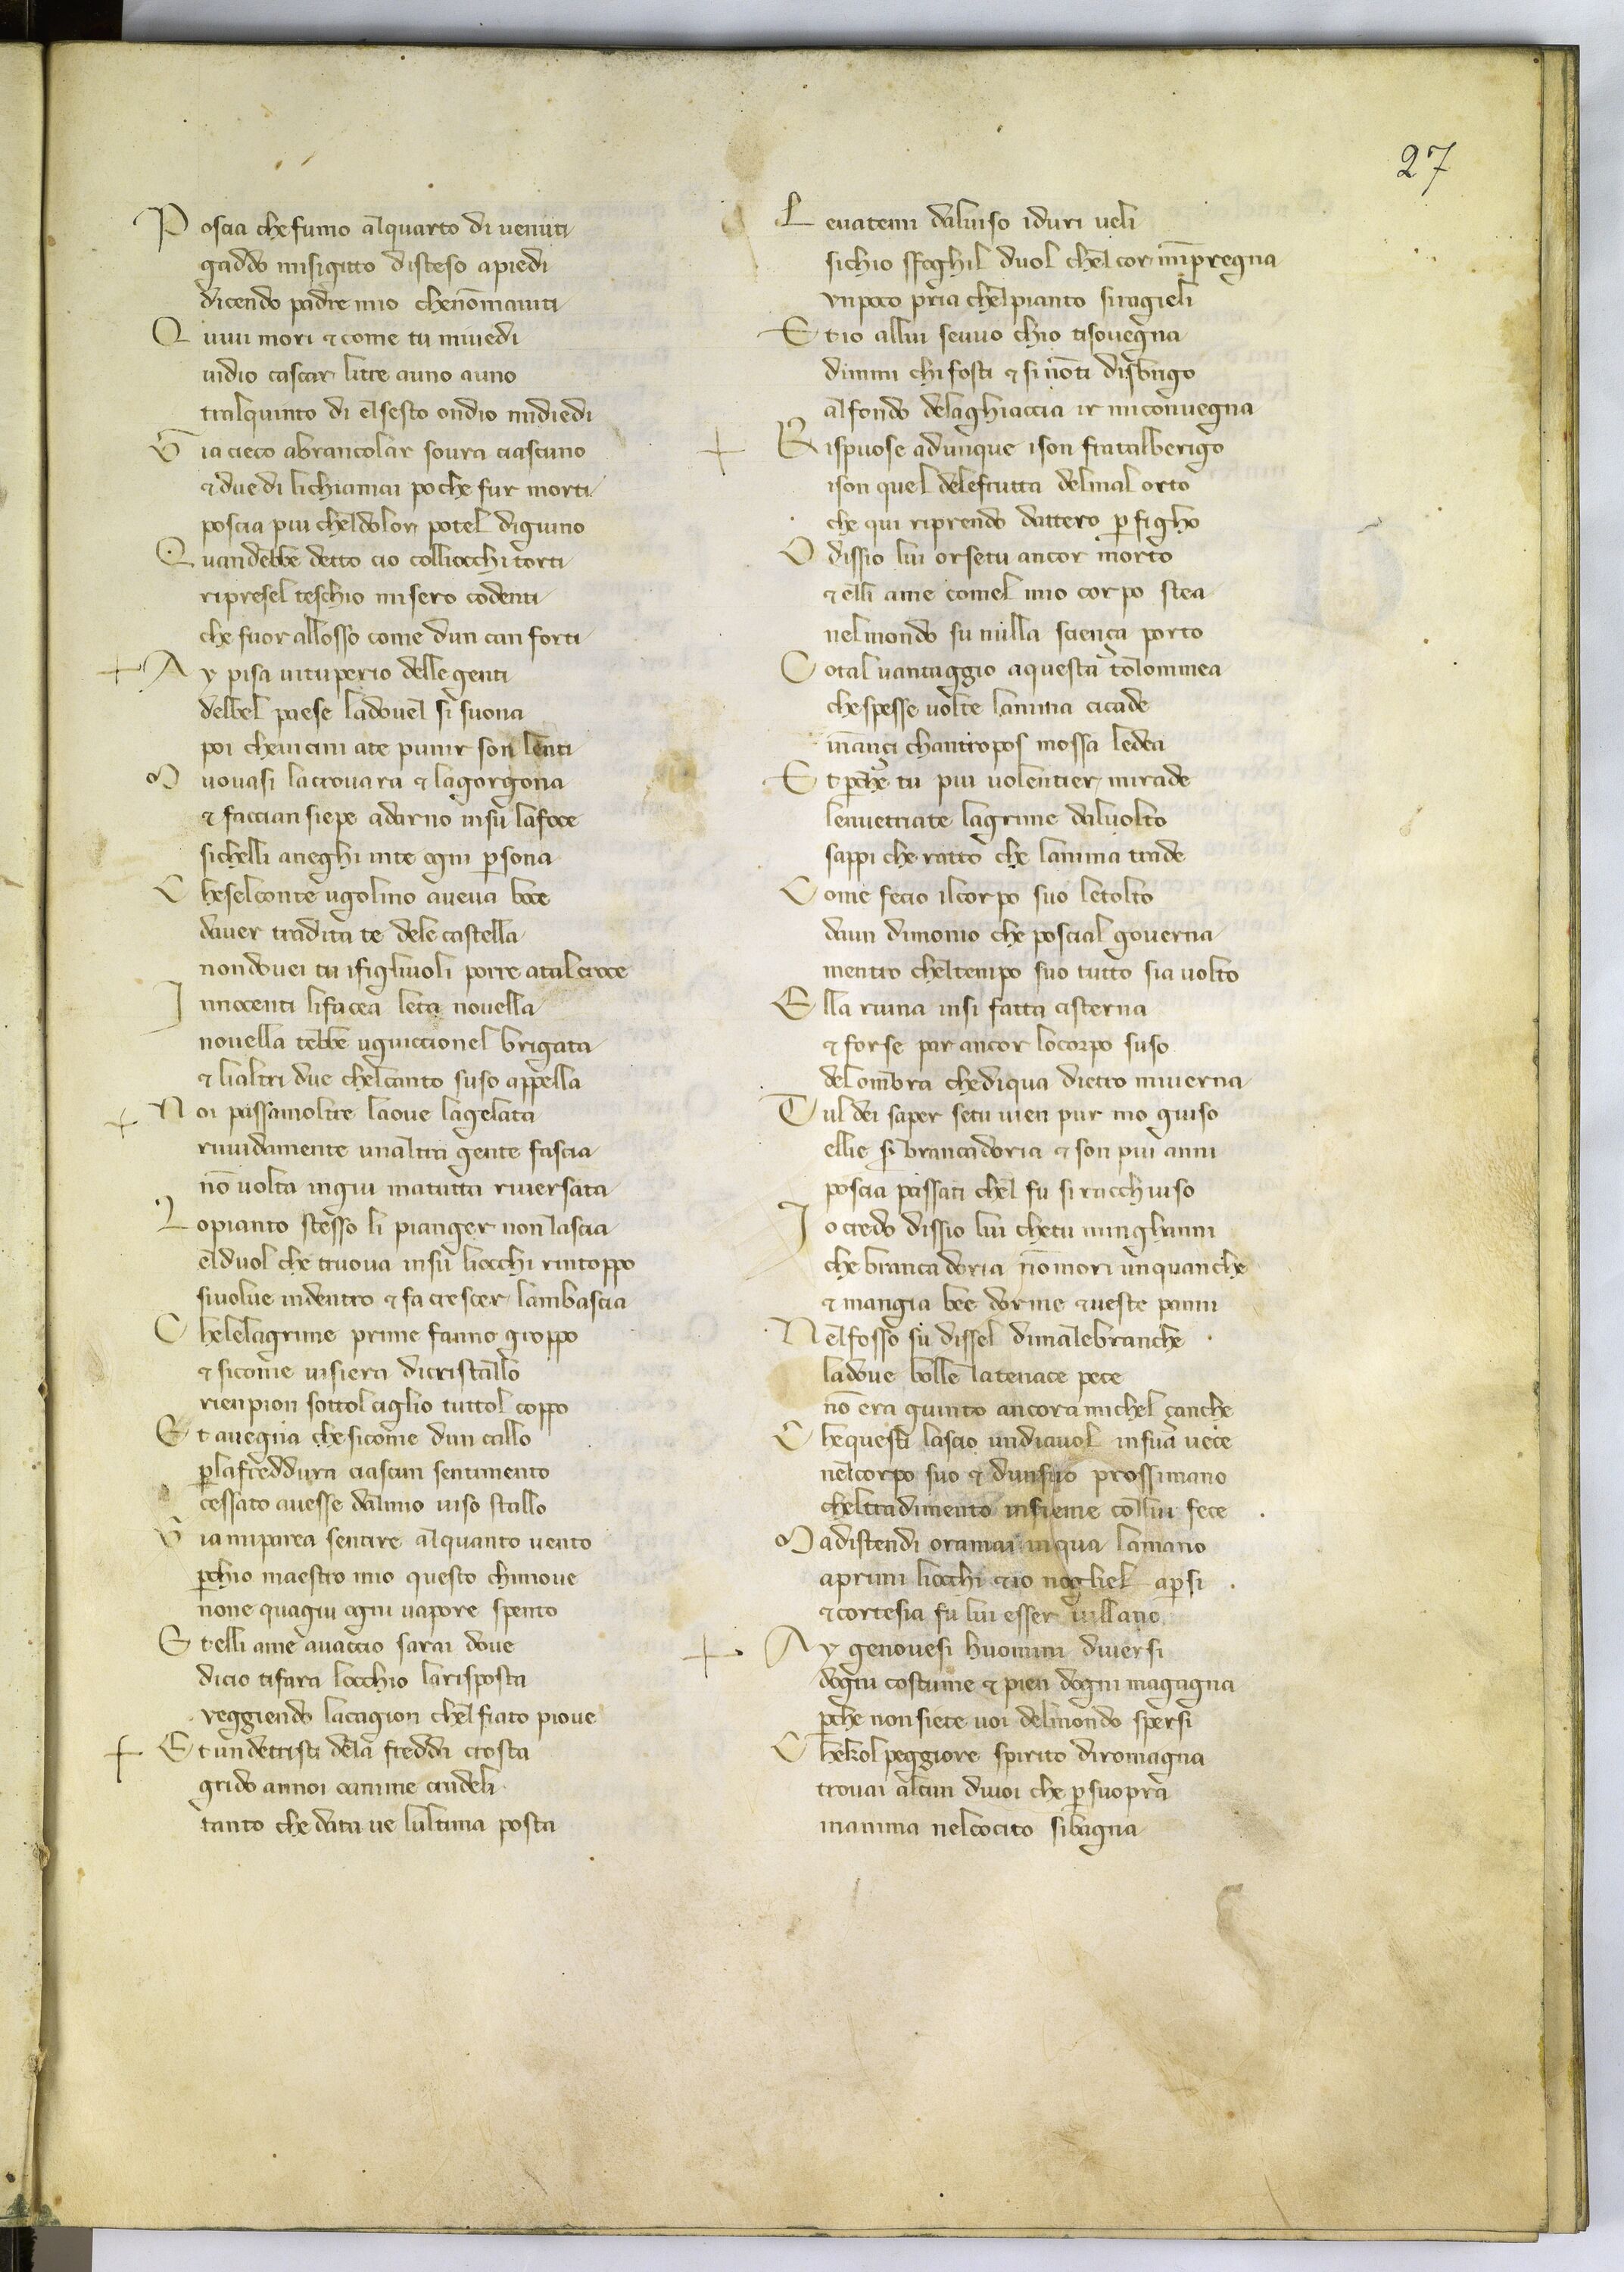 27
Poscia che fumo alquarto di uenuti
gaddo misigitto disteso apiedi
dicendo padre mio chenōmaiuti
Quiui mori & come tu miuedi
uidio cascar litre auno auno
tralquinto di elsesto ondio midiedi
Gia cieco abrancolar soura ciascuno
& due di lichiamai poche fur morti
poscia piu cheldolor potel digiuno
Quandebbe detto cio colliocchi torti
ripresel teschio misero codenti
che fuor allosso come dun can forti
Ay pisa uituperio delle genti
delbel paese ladouel si suona
poi cheuicini ate punir son lenti
Mouasi lacrouara & lagorgona
& faccian siepe adarno insu lafoce
sichelli aneghi inte ogni ꝑsona
Cheselconte ugolino aueua boce
dauer tradita te dele castella
nondouei tu ifigliuoli porre atal croce
Innocenti lifacea leta nouella
nouella tebbe uguiccionel brigata
& lialtri due chelcanto suso appella
Noi passamoltre laoue lagelata
ruuidamente unaltra gente fascia
nō uolta ingiu matutta riuersata
Lopianto stesso li pianger non lascia
elduol che truoua insu liocchi rintoppo
siuolue indentro & fa crescer lambascia
Chelelagrime prime fanno groppo
& sicome uisiera dicristallo
rienpion sottol ciglio tuttol coppo
Et auegna che sicome dun callo
ꝑlafreddura ciascun sentimento
cessato auesse dalmio uiso stallo
Gia miparea sentire alquanto uento
ꝑchio maestro mio questo chimoue
none quagiu ogni uapore spento
Et elli ame auaccio sarai doue
dicio tifara locchio larisposta
veggiendo lacagion chelfiato pioue
Et un detristi dela fredda crosta
grido annoi oanime crudeli
tanto che data ue lultima posta
Leuatemi daluiso iduri ueli
sichio sfoghil duol chel cor mīpregna
vnpoco pria chelpianto siragieli
Et io allui seuuo chio tisouegna
dimmi chi fosti & si nōti disbrigo
alfondo delaghiaccia ir miconuegna
Rispuose adunque ison fratalberigo
ison quel delefrutta delmal orto
che qui riprendo dattero ꝑ figho
O dissio lui orsetu ancor morto
& elli ame comel mio corpo stea
nelmondo su nulla sciença porto
Cotal uantaggio aquesta tolommea
chespesse uolte lanima cicade
inançi chantropos mossa ledea
Et ꝑche tu piu uolentier mirade
lenuetriate lagrime daluolto
sappi che ratto che lanima trade
Come fecio ilcorpo suo letolto
daun dimonio che poscial gouerna
mentro cheltempo suo tutto sia uolto
Ella ruina insi fatta cisterna
& forse par ancor locorpo suso
delombra chediqua dietro miuerna
Tul dei saper setu uien pur mo giuso
ellie s̄ brancadoria & son piu anni
poscia passati chel fu si racchiuso
Jo credo dissio lui chetu minghanni
che branca doria nōmori unquanche
& mangia bee dorme &ueste panni
Nelfosso su dissel dimalebranche
ladoue bolle latenace pece
nō era giunto ancora michel çanche
Chequesti lascio undiauol insua uece
nelcorpo suo & dunsuo prossimano
cheltradimento insieme collui fece
Madistendi oramai inqua lamano
aprimi liocchi &io nogliel apsi
&cortesia fu lui esser uillano
Ay genouesi huomini diuersi
dogni costume & pien dogni magagna
ꝑche nonsiete uoi delmondo spersi
Chekol peggiore spirito diromagna
trouai alcun diuoi che ꝑ suopra
inanima nelcocito sibagna